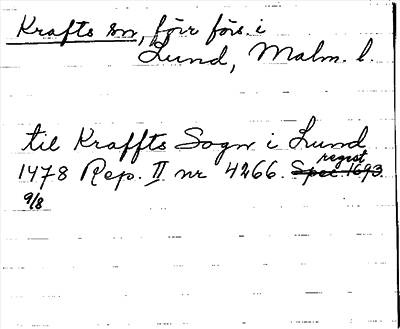 Krafts sn, förr förs. i
Lund, Malm. l.
til Kraffts Sogn i Lund
1478 Rep. II nr 4266. Spec 1693.
regist
9/8